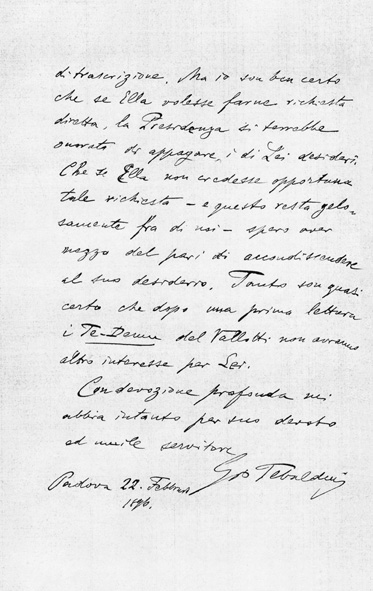 di trascrizione. Ma io son ben certo
che se Ella volesse farne richiesta
diretta, la Presidenza si terrebbe
onorata di appagare i di Lei desideri.
Che se Ella non credesse opportuna
tale richiesta – e questo resta gelo-
samente fra di noi – spero aver
mezzo del pari di accondiscendere
al suo desiderio. Tanto son quasi
certo che dopo una prima lettura
i Te-Deum del Vallotti non avranno
altro interesse per Lei.
Con devozione profonda mi
abbia intanto per suo devoto
ed umile servitore
Gio Tebaldini
Padova 22. Febbraio
1896.